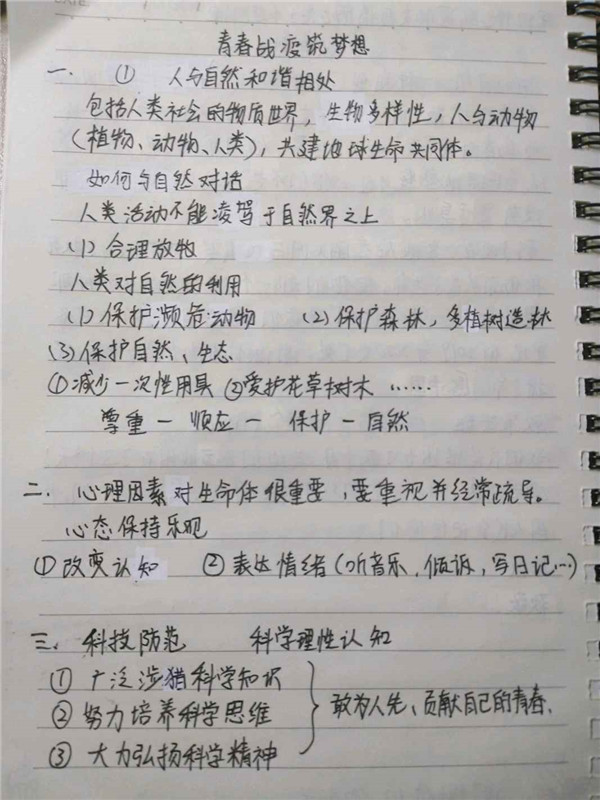 DATE
青春战疫筑梦想
一、 ① 人与自然和谐相处
包括人类社会的物质世界，生物多样性，人与动物
(植物、动物、人类)，共建地球生命共同体。
如何与自然对话
人类活动不能凌驾于自然界之上
(1) 合理放牧
人类对自然的利用
(1) 保护濒危动物 (2) 保护森林，多植树造林
(3) 保护自然、生态
①减少一次性用具 ②爱护花草树木 ……
尊重 — 顺应 — 保护 — 自然
二、心理因素对生命体很重要，要重视并经常疏导。
心态保持乐观
①改变认知 ②表达情绪(听音乐，倾诉，写日记…)
三、科技防范 科学理性认知
① 广泛涉猎科学知识
② 努力培养科学思维 敢为人先、贡献自己的青春.
③ 大力弘扬科学精神